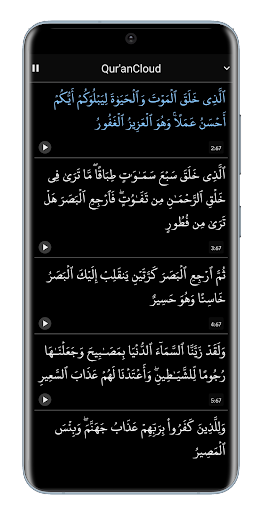 Qur'anCloud
ٱلَّذِى خَلَقَ ٱلْمَوْتَ وَٱلْحَيَوٰةَ لِيَبْلُوَكُمْ أَيُّكُمْ
أَحْسَنُ عَمَلًا ۚ وَهُوَ ٱلْعَزِيزُ ٱلْغَفُورُ
2:67
ٱلَّذِى خَلَقَ سَبْعَ سَمَـٰوَٰتٍ طِبَاقًا ۖ مَّا تَرَىٰ فِى
خَلْقِ ٱلرَّحْمَـٰنِ مِن تَفَـٰوُتٍ ۖ فَٱرْجِعِ ٱلْبَصَرَ هَلْ
تَرَىٰ مِن فُطُورٍ
3:67
ثُمَّ ٱرْجِعِ ٱلْبَصَرَ كَرَّتَيْنِ يَنقَلِبْ إِلَيْكَ ٱلْبَصَرُ
خَاسِئًا وَهُوَ حَسِيرٌ
4:67
وَلَقَدْ زَيَّنَّا ٱلسَّمَآءَ ٱلدُّنْيَا بِمَصَـٰبِيحَ وَجَعَلْنَـٰهَا
رُجُومًا لِّلشَّيَـٰطِينِ ۖ وَأَعْتَدْنَا لَهُمْ عَذَابَ ٱلسَّعِيرِ
5:67
وَلِلَّذِينَ كَفَرُوا۟ بِرَبِّهِمْ عَذَابُ جَهَنَّمَ ۖ وَبِئْسَ
ٱلْمَصِيرُ